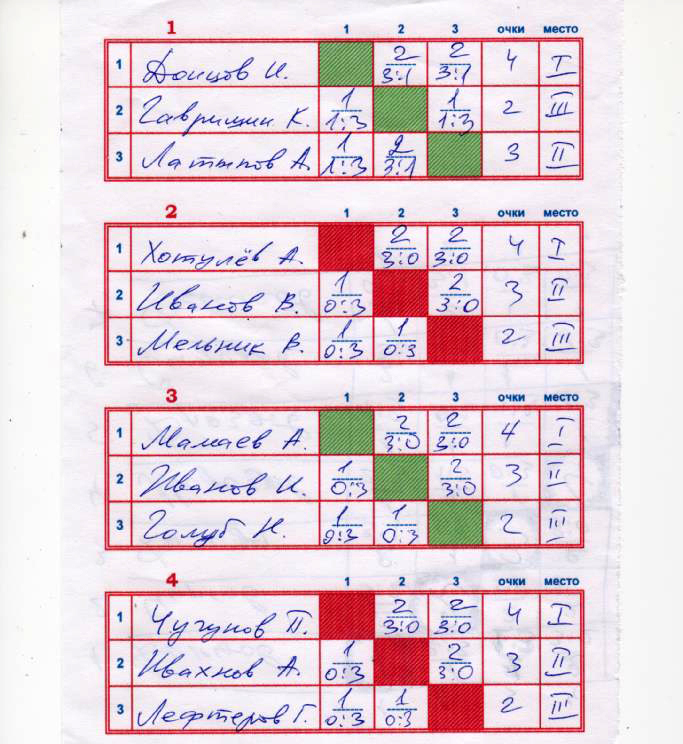 1 1 2 3 очки место
1 Донцов И. 2 3:1 2 3:1 4 I
2 Гаврищин К. 1 1:3 1 1:3 2 III
3 Латыпов А. 1 1:3 2 3:1 3 II
2 1 2 3 очки место
1 Хотулёв А. 2 3:0 2 3:0 4 I
2 Иванов В. 1 0:3 2 3:0 3 II
3 Мельник В. 1 0:3 1 0:3 2 III
3 1 2 3 очки место
1 Мамаев А. 2 3:0 2 3:0 4 I
2 Иванов И. 1 0:3 2 3:0 3 II
3 Голуб Н. 1 0:3 1 0:3 2 III
4 1 2 3 очки место
1 Чугунов П. 2 3:0 2 3:0 4 I
2 Ивахнов А. 1 0:3 2 3:0 3 II
3 Лефтеров Г. 1 0:3 1 0:3 2 III